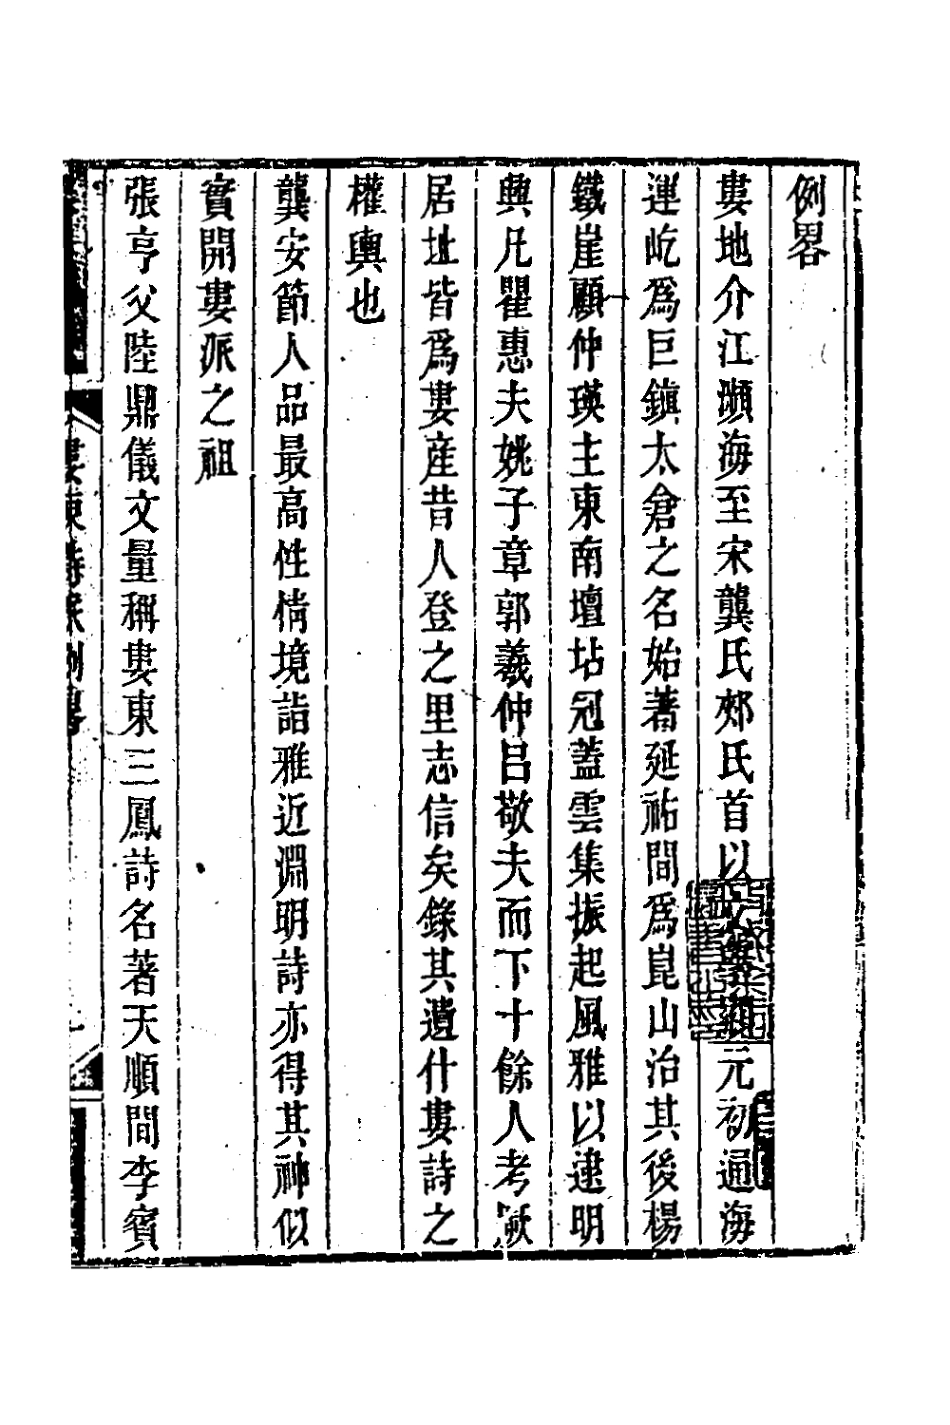 例畧
婁地介江瀕海至宋龔氏郟氏首以文學顯元初通海
運屹爲巨鎮太倉之名始著延祐間爲崑山治其後楊
鐵崖顧仲瑛主東南壇坫冠蓋雲集振起風雅以逮明
興凡瞿惠夫姚子章郭羲仲呂敬夫而下十餘人考厥
居址皆爲婁産昔人登之里志信矣錄其遺什婁詩之
權輿也
龔安節人品最高性情境詣雅近淵明詩亦得其神似
實開婁派之祖
張亨父陸鼎儀文量稱婁東三鳳詩名著天順間李賓
婁東詩派例畧
一